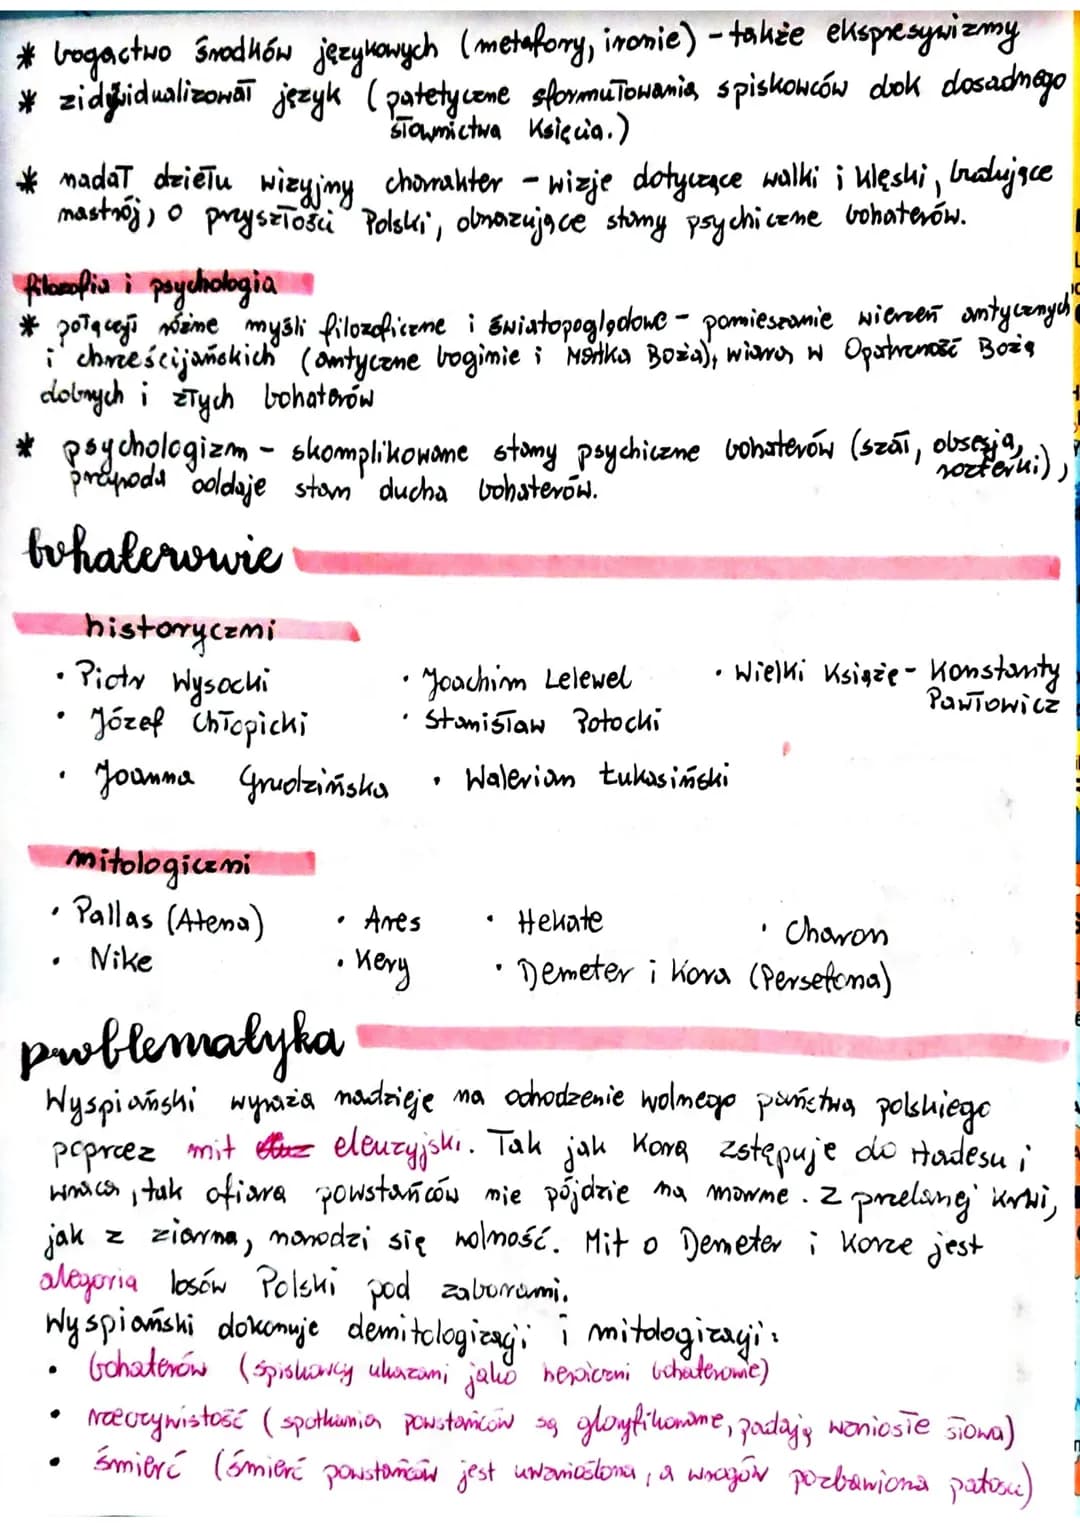 * bogactwo środków językowych (metafory, ironie) - także ekspresywizmy
* zidywidualizował język (patetyczne sformułowania spiskowców obok dosadnego
słownictwa Księcia.)
* nadał dziełu wizyjny charakter - wizje dotyczące walki i klęski, budujące
nastrój, o przyszłości Polski, obrazujące stany psychiczne bohaterów.
filozofia i psychologia
* połączył różne myśli filozoficzne i światopoglądowe - pomieszanie wierzeń antycznych
i chrześcijańskich (antyczne boginie i Matka Boża), wiara w Opatrzność Bożą
dobrych i złych bohaterów
* psychologizm - skomplikowane stany psychiczne bohaterów (szał, obsesja,
rozterki),
przyroda oddaje stan ducha bohaterów.
bohaterowie
historyczni
· Piotr Wysocki · Joachim Lelewel · Wielki Książę - Konstanty
Pawłowicz
· Józef Chłopicki · Stanisław Potocki
· Joanna Grudzińska · Walerian Łukasiński
mitologiczni
· Pallas (Atena) · Ares · Hekate · Charon
· Nike · Kery · Demeter i Kora (Persefona)
problematyka
Wyspiański wyraża nadzieję na odrodzenie wolnego państwa polskiego
poprzez mit eleuzyjski. Tak jak Kora zstępuje do Hadesu i
wraca, tak ofiara powstańców nie pójdzie na marne. Z przelanej krwi,
jak z ziarna, narodzi się wolność. Mit o Demeter i Korze jest
alegoria losów Polski pod zaborami.
Wyspiański dokonuje demitologizacji i mitologizacji:
· bohaterów (spiskowcy ukazani jako heroiczni bohaterowie)
· rzeczywistość (spotkania powstańców są gloryfikowane, padają wzniosłe słowa)
· śmierć (śmierć powstańców jest uwznioślona, a wrogów pozbawiona patosu)